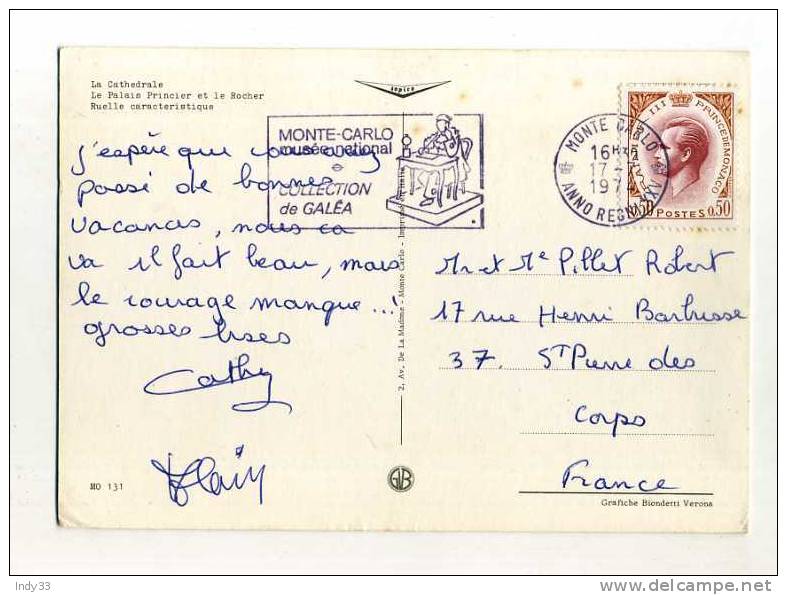 La Cathedrale
Le Palais Princier et le Rocher
Ruelle caracteristique
topica
MONTE-CARLO
musée national
COLLECTION
de GALÉA
MONTE CARLO
16H
17
197
ANNO REGNI XXI
III PRINCE DE MONACO
0.50 POSTES 0.50
j'espère que vous avez
passé de bonnes
vacances, nous ca
va il fait beau, mais
le courage manque...!
grosses bises
Cathy
Alain
Mr et Me Pillet Robert
17 rue Henri Barbusse
37. St Pierre des
Corps
France
2, Av. De La Madone - Monte Carlo - Imprimé en Italie
MO 131
GB
Grafiche Biondetti Verona
Indy33
www.delcampe.net